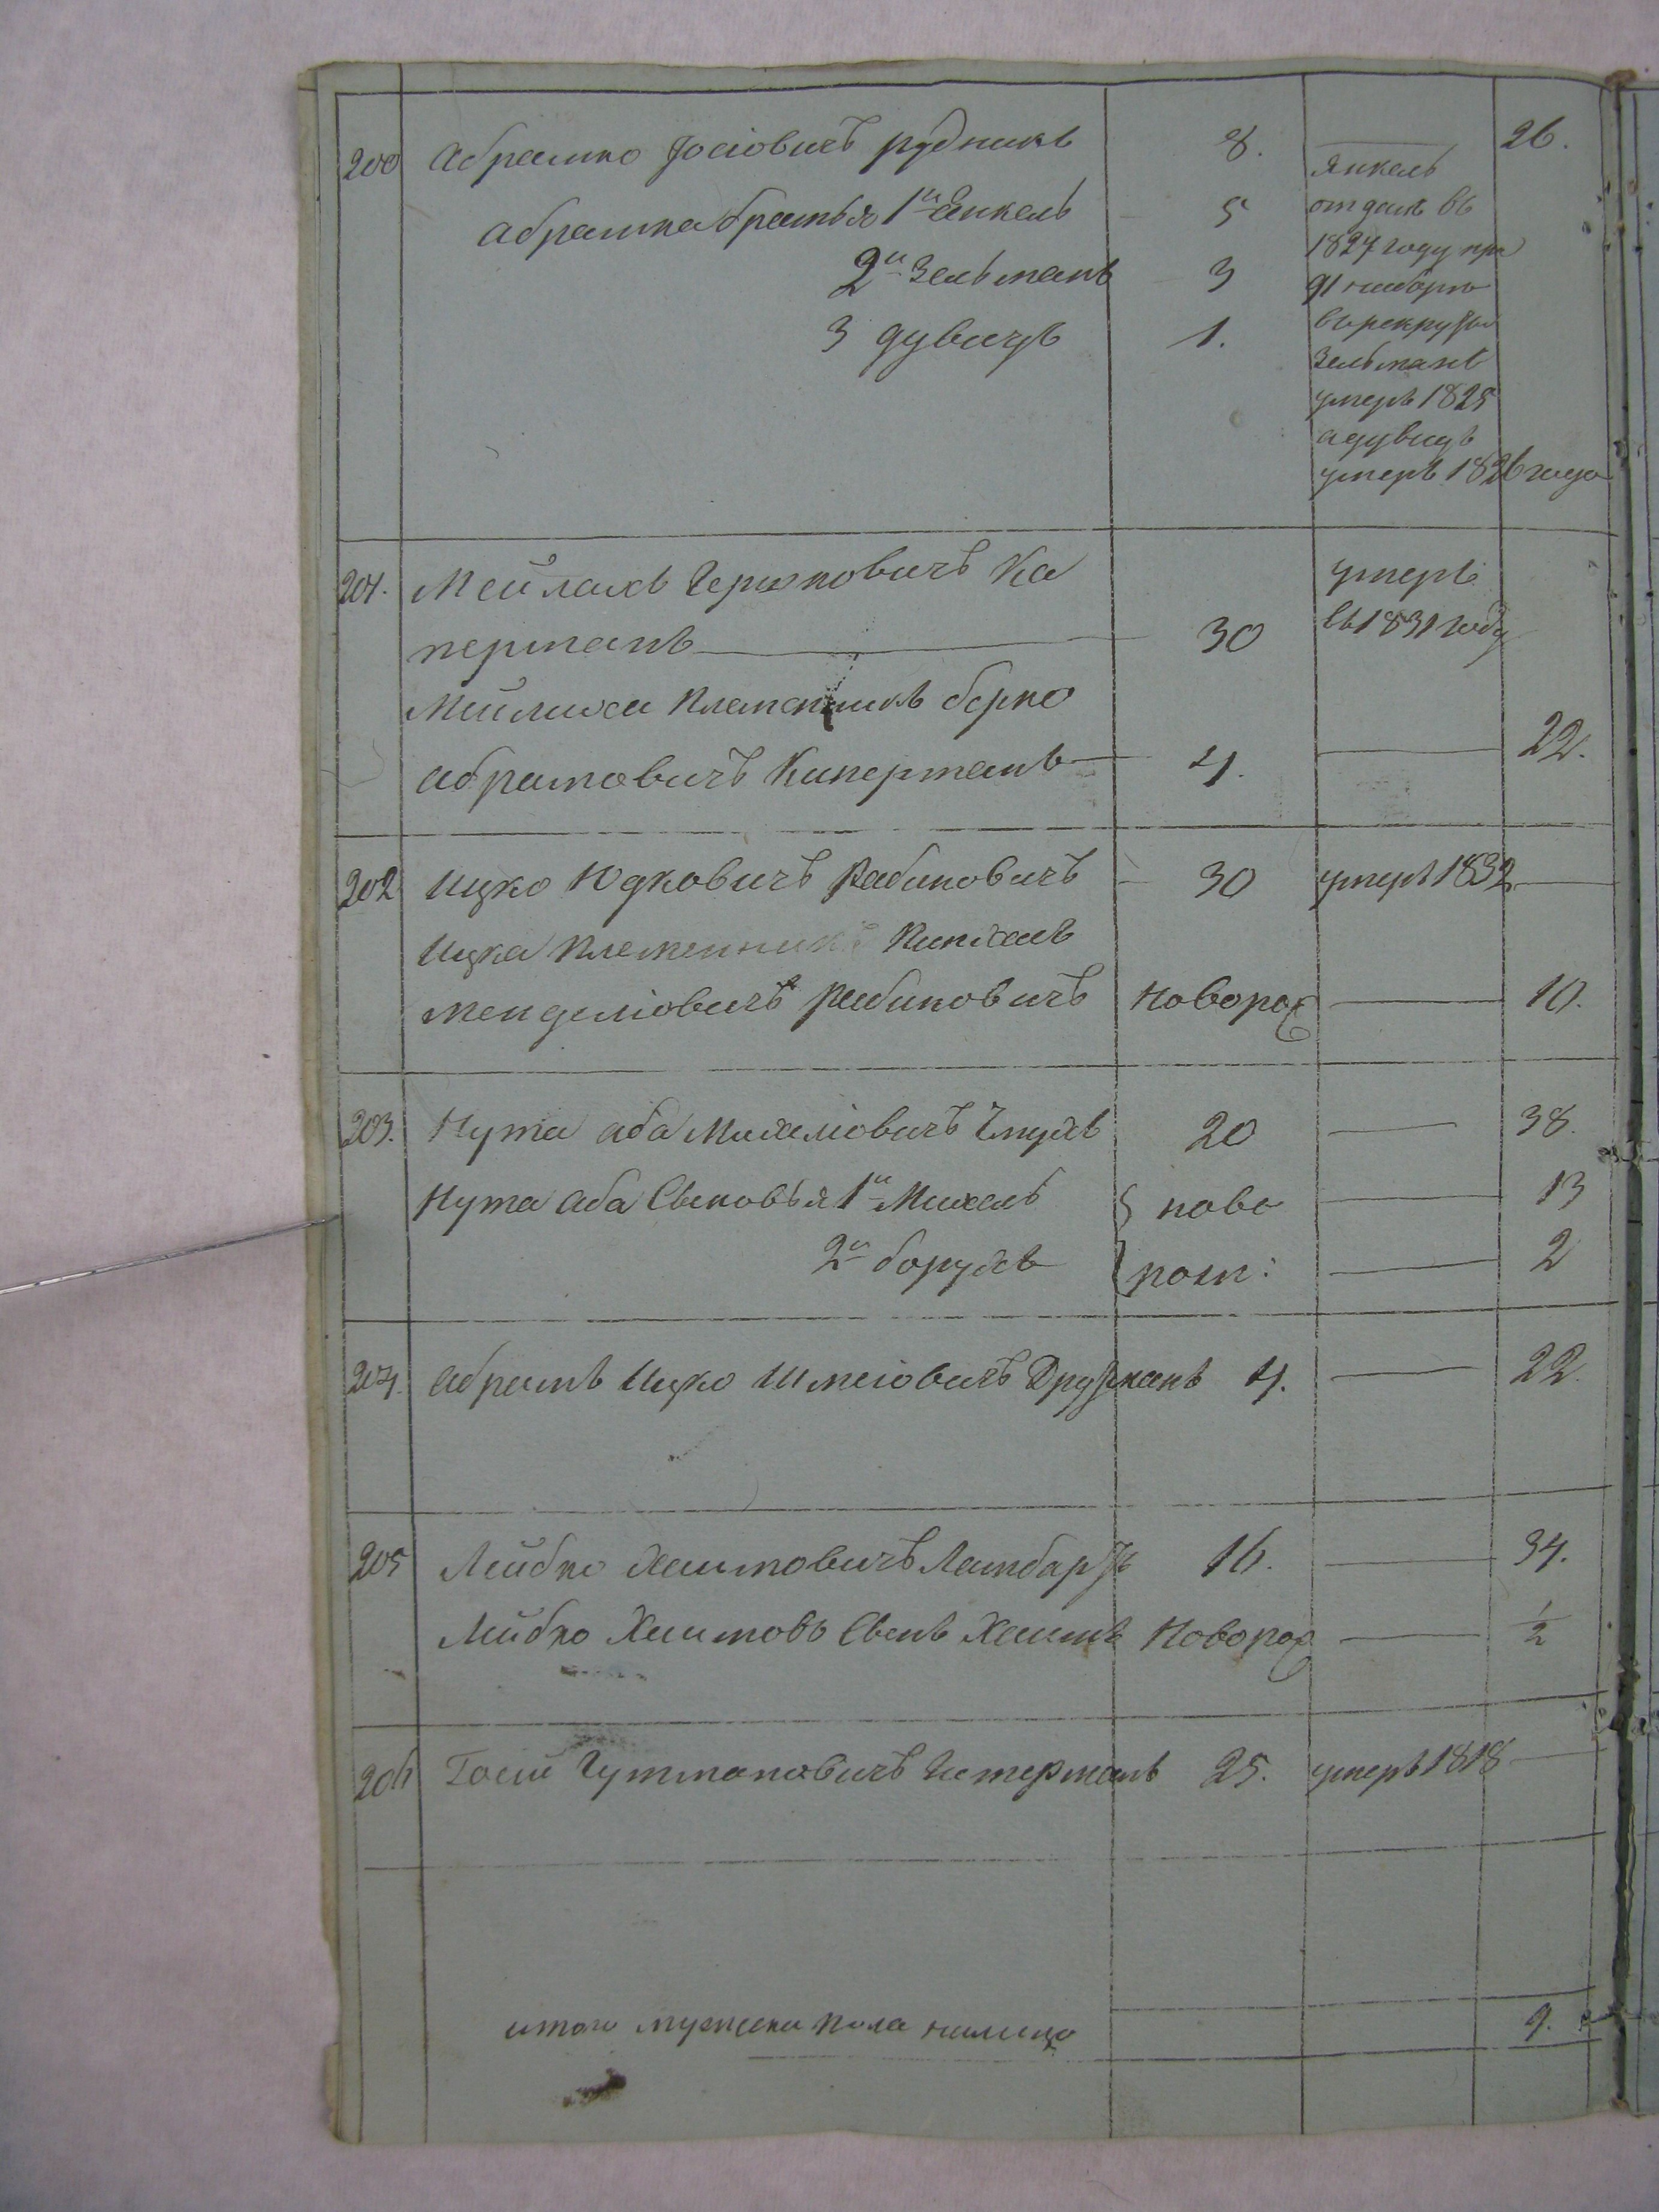 200 Абрамко Іосіовичъ рудникъ 8. 26.
Абрамка братья 1й Янкель 5
2й Зельманъ 3
3 дувидъ 1.
Янкель
отданъ въ
1827 году при
91 наборъ
въ рекруты
Зельманъ
умеръ 1825
а дувидъ
умеръ 1826 года
201. Мейлахъ Гершковичъ Ка
перманъ 30
умеръ
въ 1831 году
Мейлаха племянникъ берко
абрамовичъ Каперманъ 4. 22.
202 Ицко Юдковичъ Рабиновичъ 30 умеръ 1832
Ицка племенникъ Пинхасъ
Менделіовичъ Рабиновичъ Новорож 10.
203. Нута аба Михеліовичъ 20 38.
Нута аба Сыновья 1й Михель ново 13
2й борухъ рож: 2
204. абрамъ Ицко Шмеіовичъ Друкманъ 4. 22.
205 Лейбко Хаимовичъ Ламбарзъ 16. 34.
Лейбко Хаимовъ Сынъ Хаимъ Новорож 1/2
206 Госій Гутмановичъ Гитерманъ 25. умеръ 1818
итого мужеска пола налицо 9.